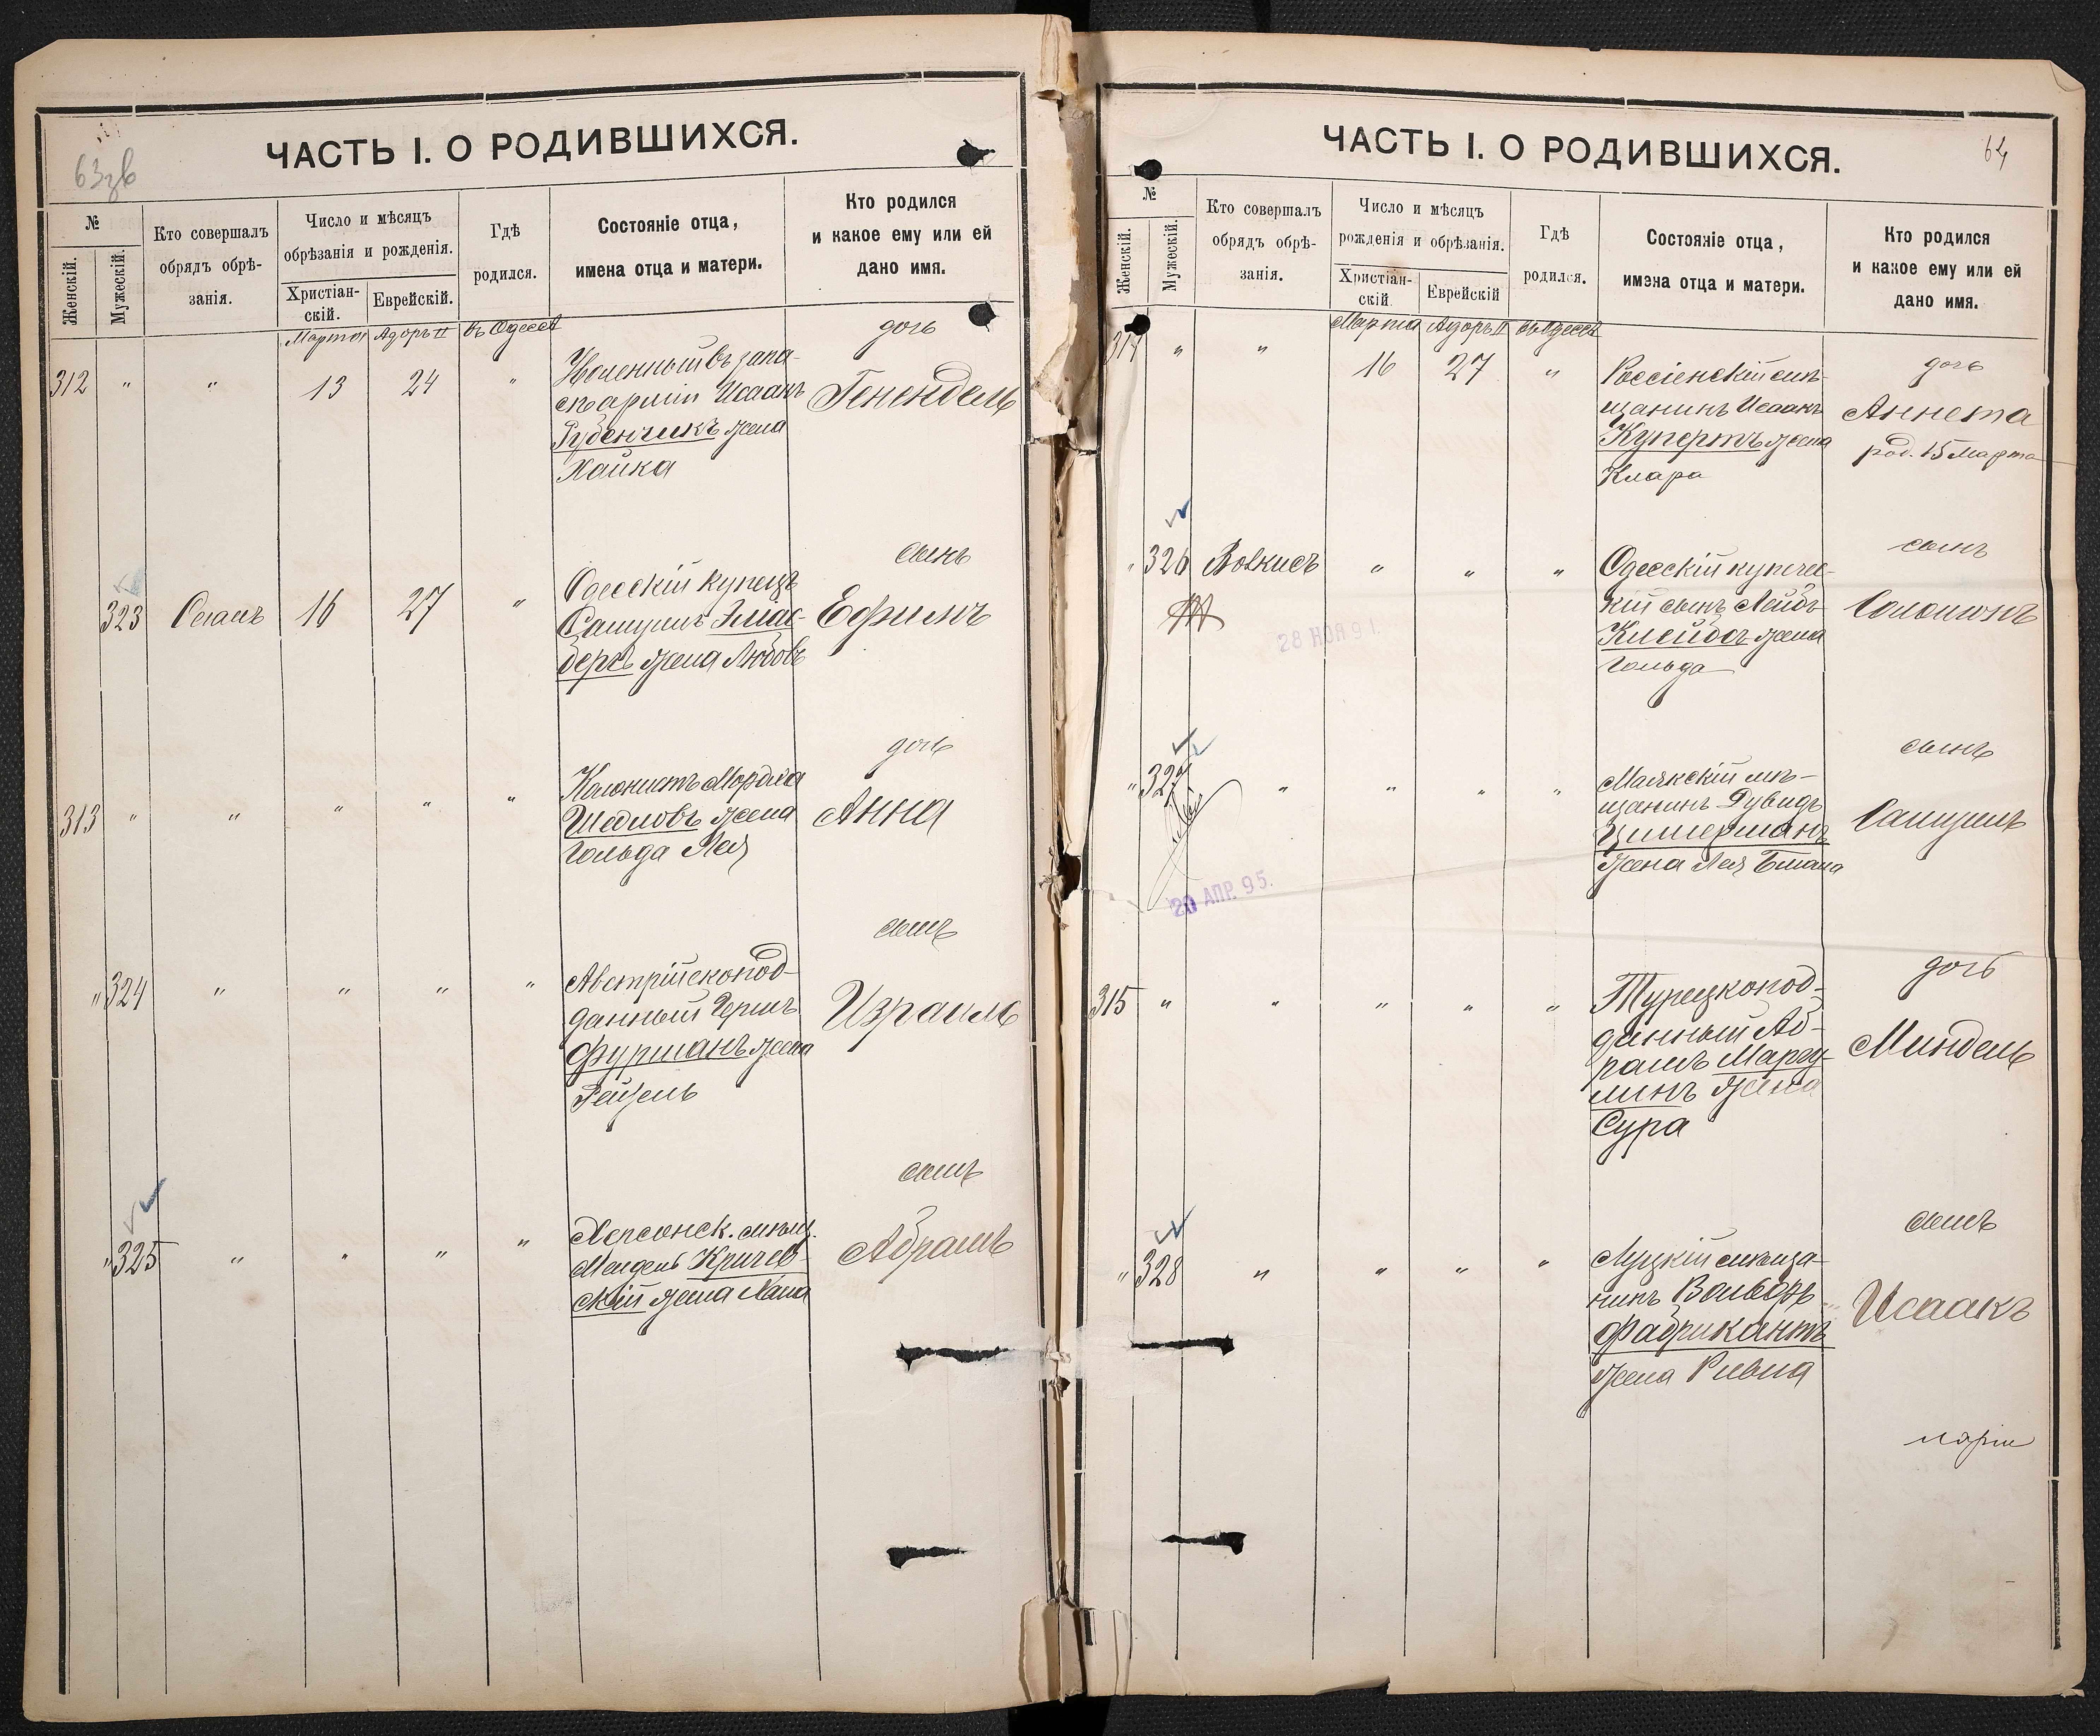 63зв
ЧАСТЬ I. О РОДИВШИХСЯ.
№
Женскій.
Мужескій.
Кто совершалъ
обрядъ обрѣ-
занія.
Число и мѣсяцъ
обрѣзанія и рожденія.
Христіан-
скій.
Еврейскій.
Гдѣ
родился.
Состояніе отца,
имена отца и матери.
Кто родился
и какое ему или ей
дано имя.
Марта Адоръ II въ Одессѣ
312 " " 13 24 "
въ запа-
арміи Исаакъ
Рубенчикъ жена
Хайка
дочь
Генендель
323 16 27 "
Одесскій купецъ
Самуилъ
бергъ жена Любовь
сынъ
Ефимъ
313 " " " " "
Колонистъ
жена
Гольда Лея
дочь
Анна
" 324 " " " "
Австрійскопод-
данный Гершъ
Фурманъ жена
Рейзель
сынъ
Израиль
" 325 " " " "
Херсонск. мѣщ.
Мендель Кричев-
скій жена Хана
сынъ
Абрамъ
64
ЧАСТЬ I. О РОДИВШИХСЯ.
№
Женскій.
Мужескій.
Кто совершалъ
обрядъ обрѣ-
занія.
Число и мѣсяцъ
рожденія и обрѣзанія.
Христіан-
скій.
Еврейскій
Гдѣ
родился.
Состояніе отца,
имена отца и матери.
Кто родился
и какое ему или ей
дано имя.
Марта Адоръ II въ Одессѣ
314 " " 16 27 "
Россіенскій мѣ-
щанинъ Исаакъ
Купертъ жена
Клара
дочь
Аннета
род. 15 Марта
" 326 Волкисъ " " "
Одесскій купечес-
кій сынъ Лейбъ
жена
Гольда
сынъ
Соломонъ
28 НОЯ 91.
" 327 " " " "
Маякскій мѣ-
щанинъ Дувидъ
Цимерманъ
жена Лея Бтама
сынъ
Самуилъ
20 АПР. 95.
315 " " " " "
Турецкопод-
данный Аб-
рамъ Маргу-
линъ жена
Сура
дочь
Миндель
" 328 " " " "
Луцкій мѣща-
нинъ Вольфъ
Фабрикантъ
жена Ривка
сынъ
Исаакъ